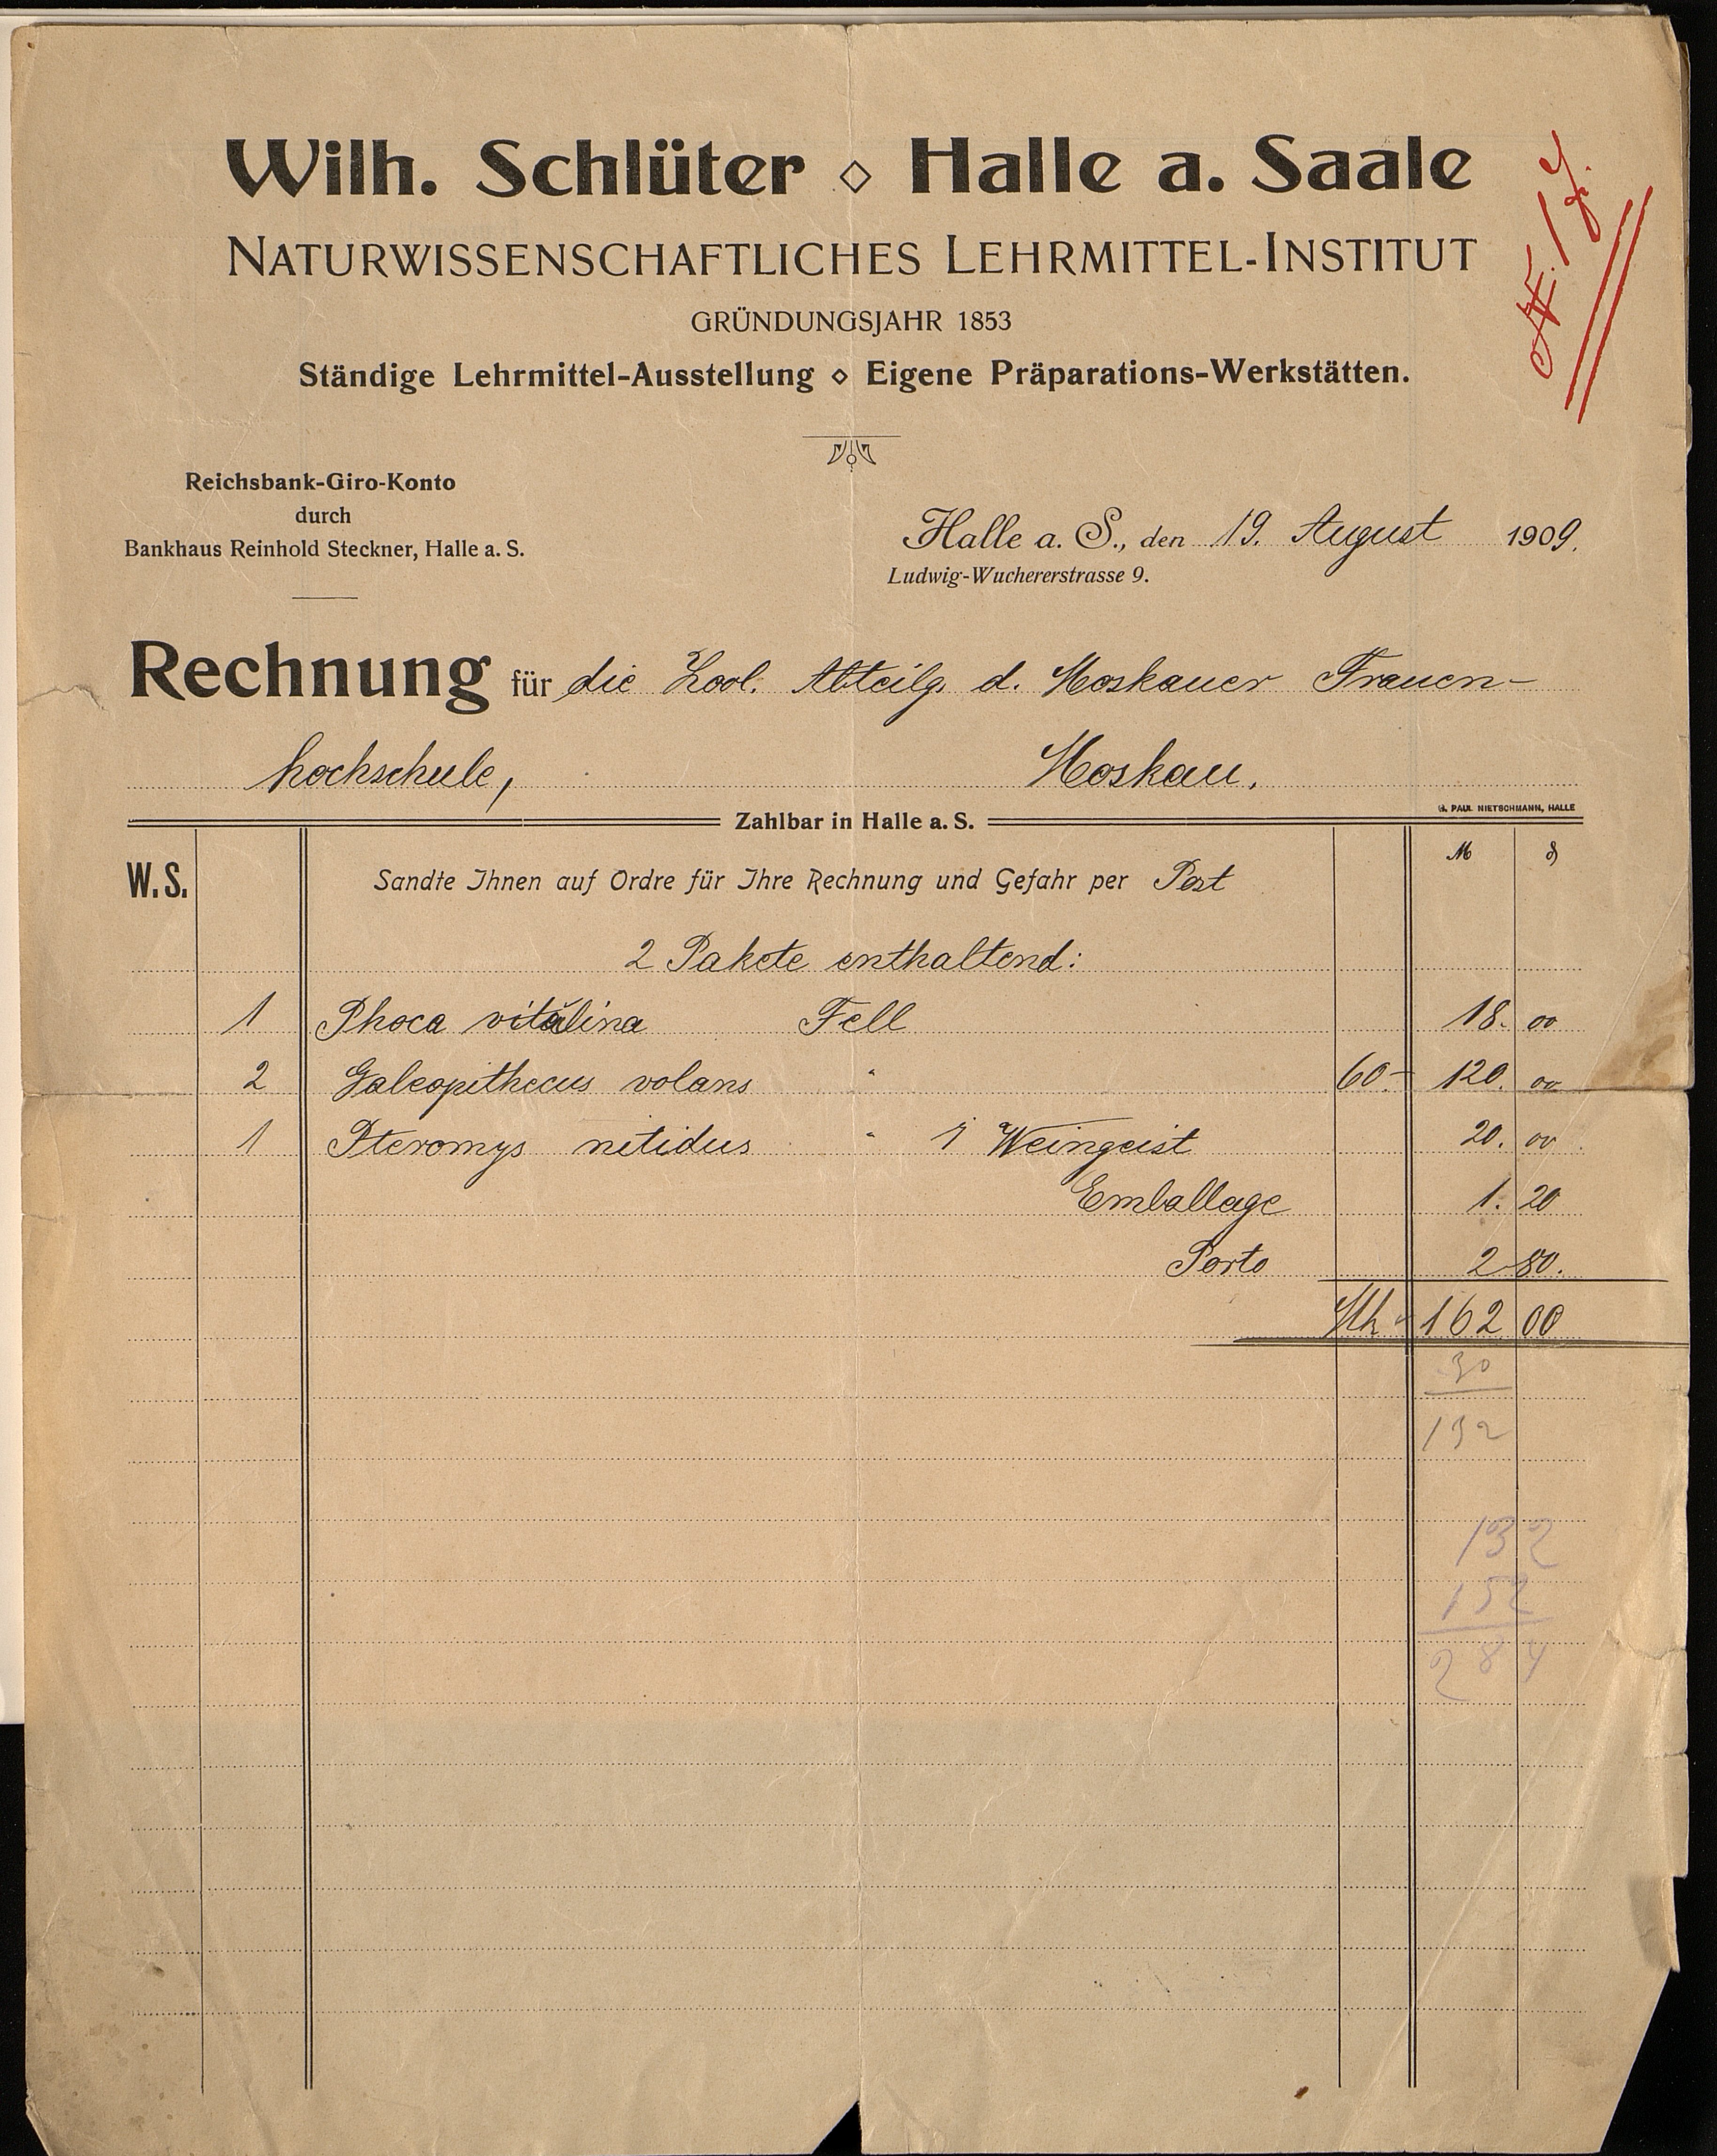 Wilh. Schlüter ◇ Halle a. Saale
NATURWISSENSCHAFTLICHES LEHRMITTEL-INSTITUT
GRÜNDUNGSJAHR 1853
Ständige Lehrmittel-Ausstellung ◇ Eigene Präparations-Werkstätten.
Reichsbank-Giro-Konto
durch
Bankhaus Reinhold Steckner, Halle a. S.
Halle a. S., den 19. August 1909.
Ludwig-Wuchererstrasse 9.
Rechnung für die Zool. Abteilg. d. Moskauer Frauen-
hochschule, Moskau.
PAUL NIETSCHMANN, HALLE
Zahlbar in Halle a. S.
W. S. Sandte Ihnen auf Ordre für Ihre Rechnung und Gefahr per Post M ₰
2 Pakete enthaltend:
1 Phoca vitulina Fell 18. 00
2 Galeopithecus volans " 60.- 120. 00
1 Pteromys nitidus " i Weingeist 20. 00
Emballage 1. 20
Porto 2 80.
Mk 162 00
30
132
132
152
284